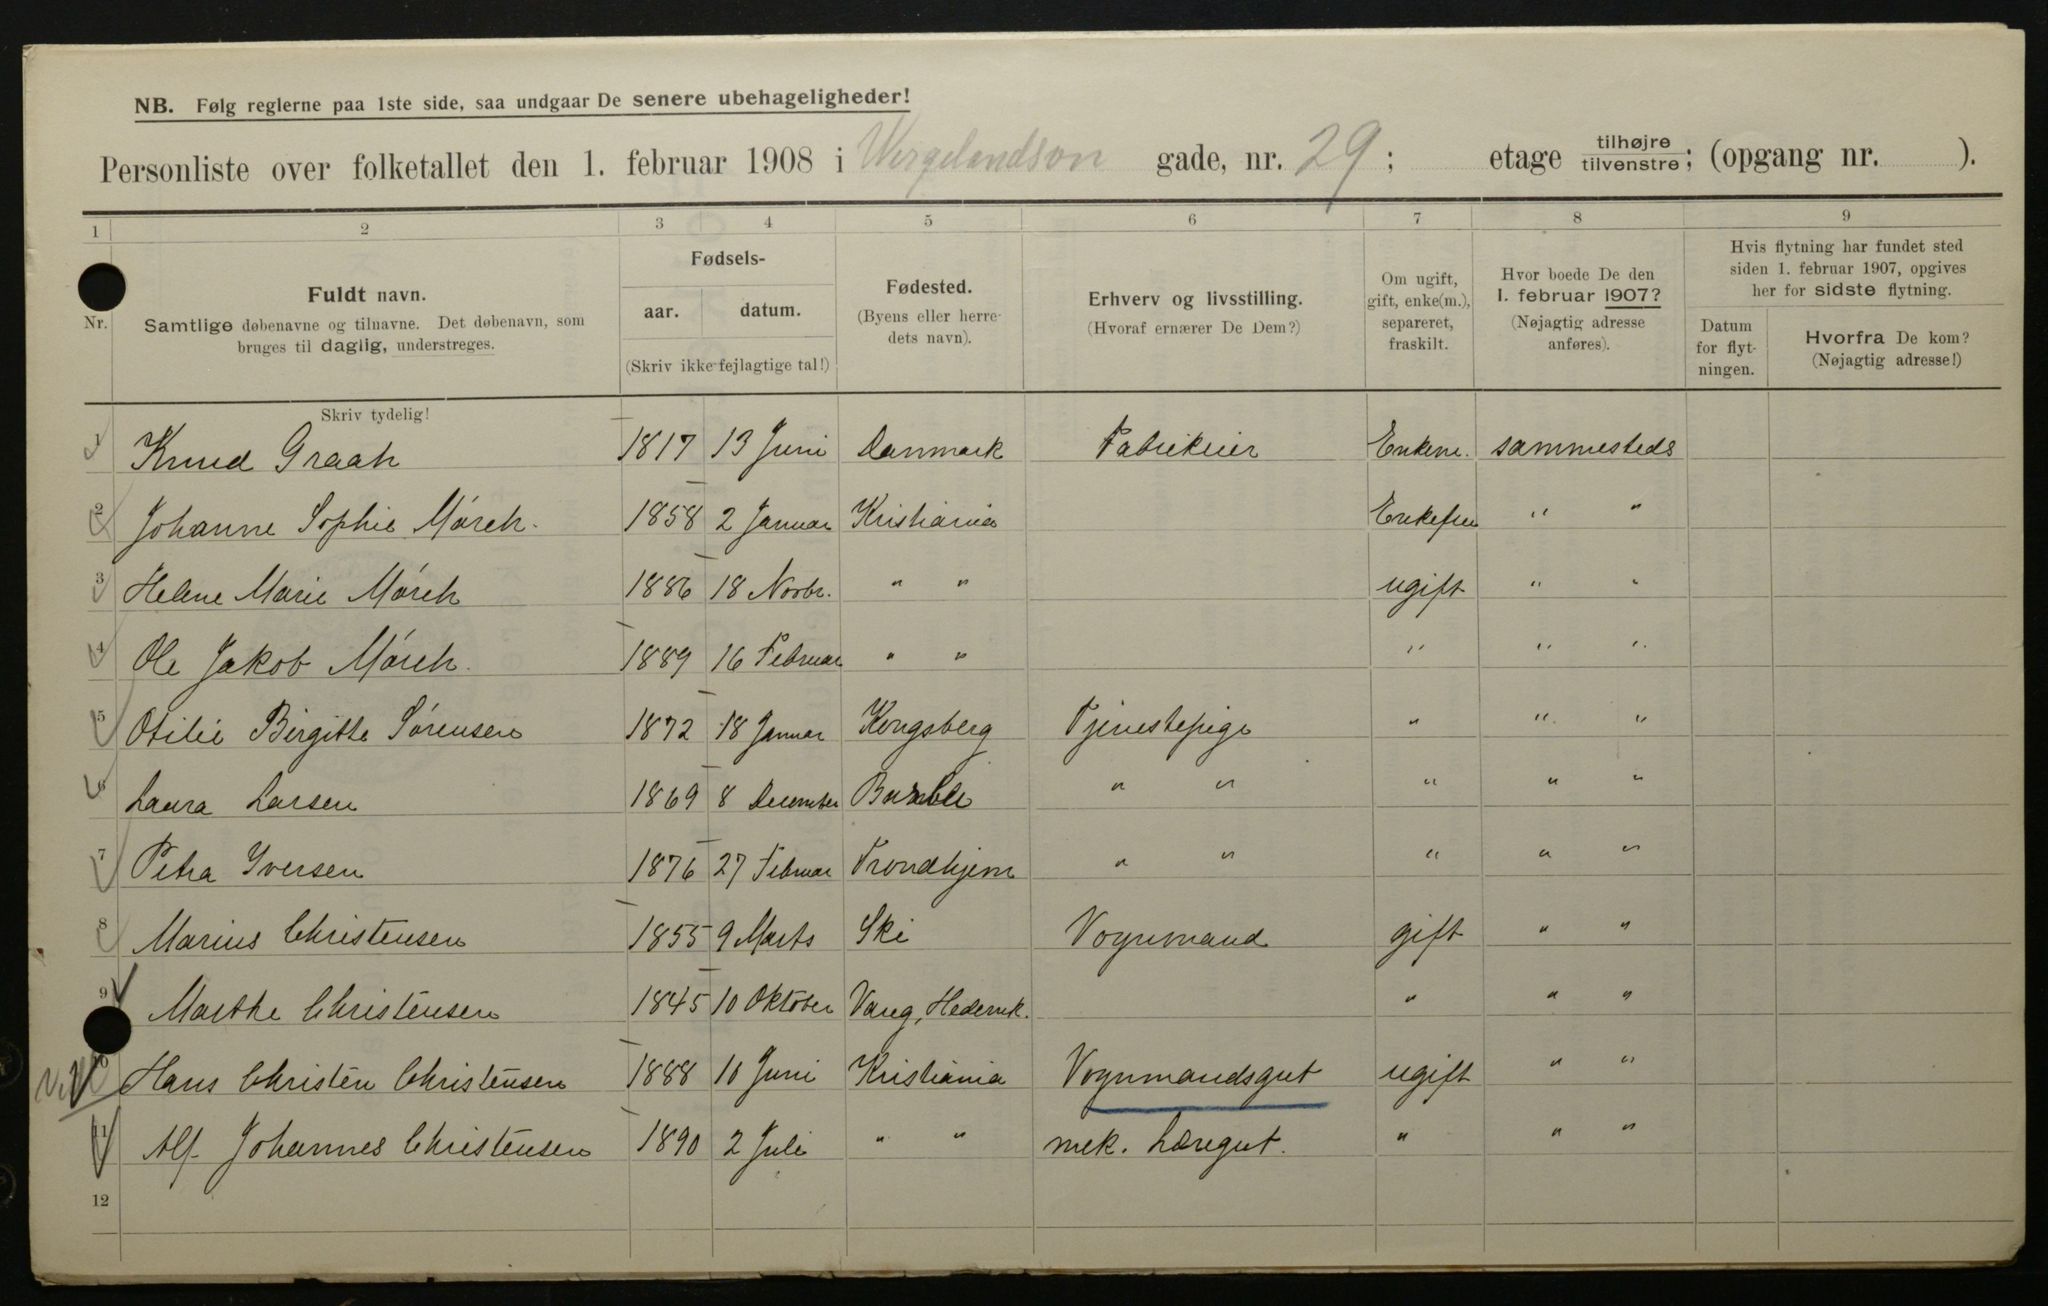 NB. Følg reglerne paa 1ste side, saa undgaar De senere ubehageligheder!
Personliste over folketallet den 1. februar 1908 i Wergelandsvn gade, nr. 29; etage tilhøjre tilvenstre; (opgang nr. ).
1 2 3 4 5 6 7 8 9
Nr. Fuldt navn. Samtlige døbenavne og tilnavne. Det døbenavn, som bruges til daglig, understreges. Skriv tydelig!
Fødsels- aar. datum. (Skriv ikke fejlagtige tal!)
Fødested. (Byens eller herredets navn).
Erhverv og livsstilling. (Hvoraf ernærer De Dem?)
Om ugift, gift, enke(m.), separeret, fraskilt.
Hvor boede De den 1. februar 1907? (Nøjagtig adresse anføres).
Hvis flytning har fundet sted siden 1. februar 1907, opgives her for sidste flytning.
Datum for flytningen.
Hvorfra De kom? (Nøjagtig adresse!)
1 Knud Graah 1817 13 Juni Danmark Fabrikeier Enkem. sammesteds
2 Johanne Sophie Mórch. 1858 2 Januar Kristiania Enkefru " "
3 Helene Marie Mórch 1886 18 Novbr. " " ugift " "
4 Ole Jakob Mórch. 1889 16 Februar " " " " "
5 Otilie Birgitte Sørensen 1872 18 Januar Kongsberg Tjenestepige " " "
6 Laura Larsen 1869 8 December Bamble " " " " "
7 Petra Iversen 1876 27 Februar Trondhjem " " " " "
8 Marius Christensen 1855 9 Marts Ski Vognmand gift " "
9 Marthe Christensen 1845 10 Oktober Vang, Hedemk. " " "
10 Hans Christen Christensen 1888 10 Juni Kristiania Vognmandsgut ugift " "
11 Alf Johannes Christensen 1890 2 Juli " " mek. Læregut. " " "
12